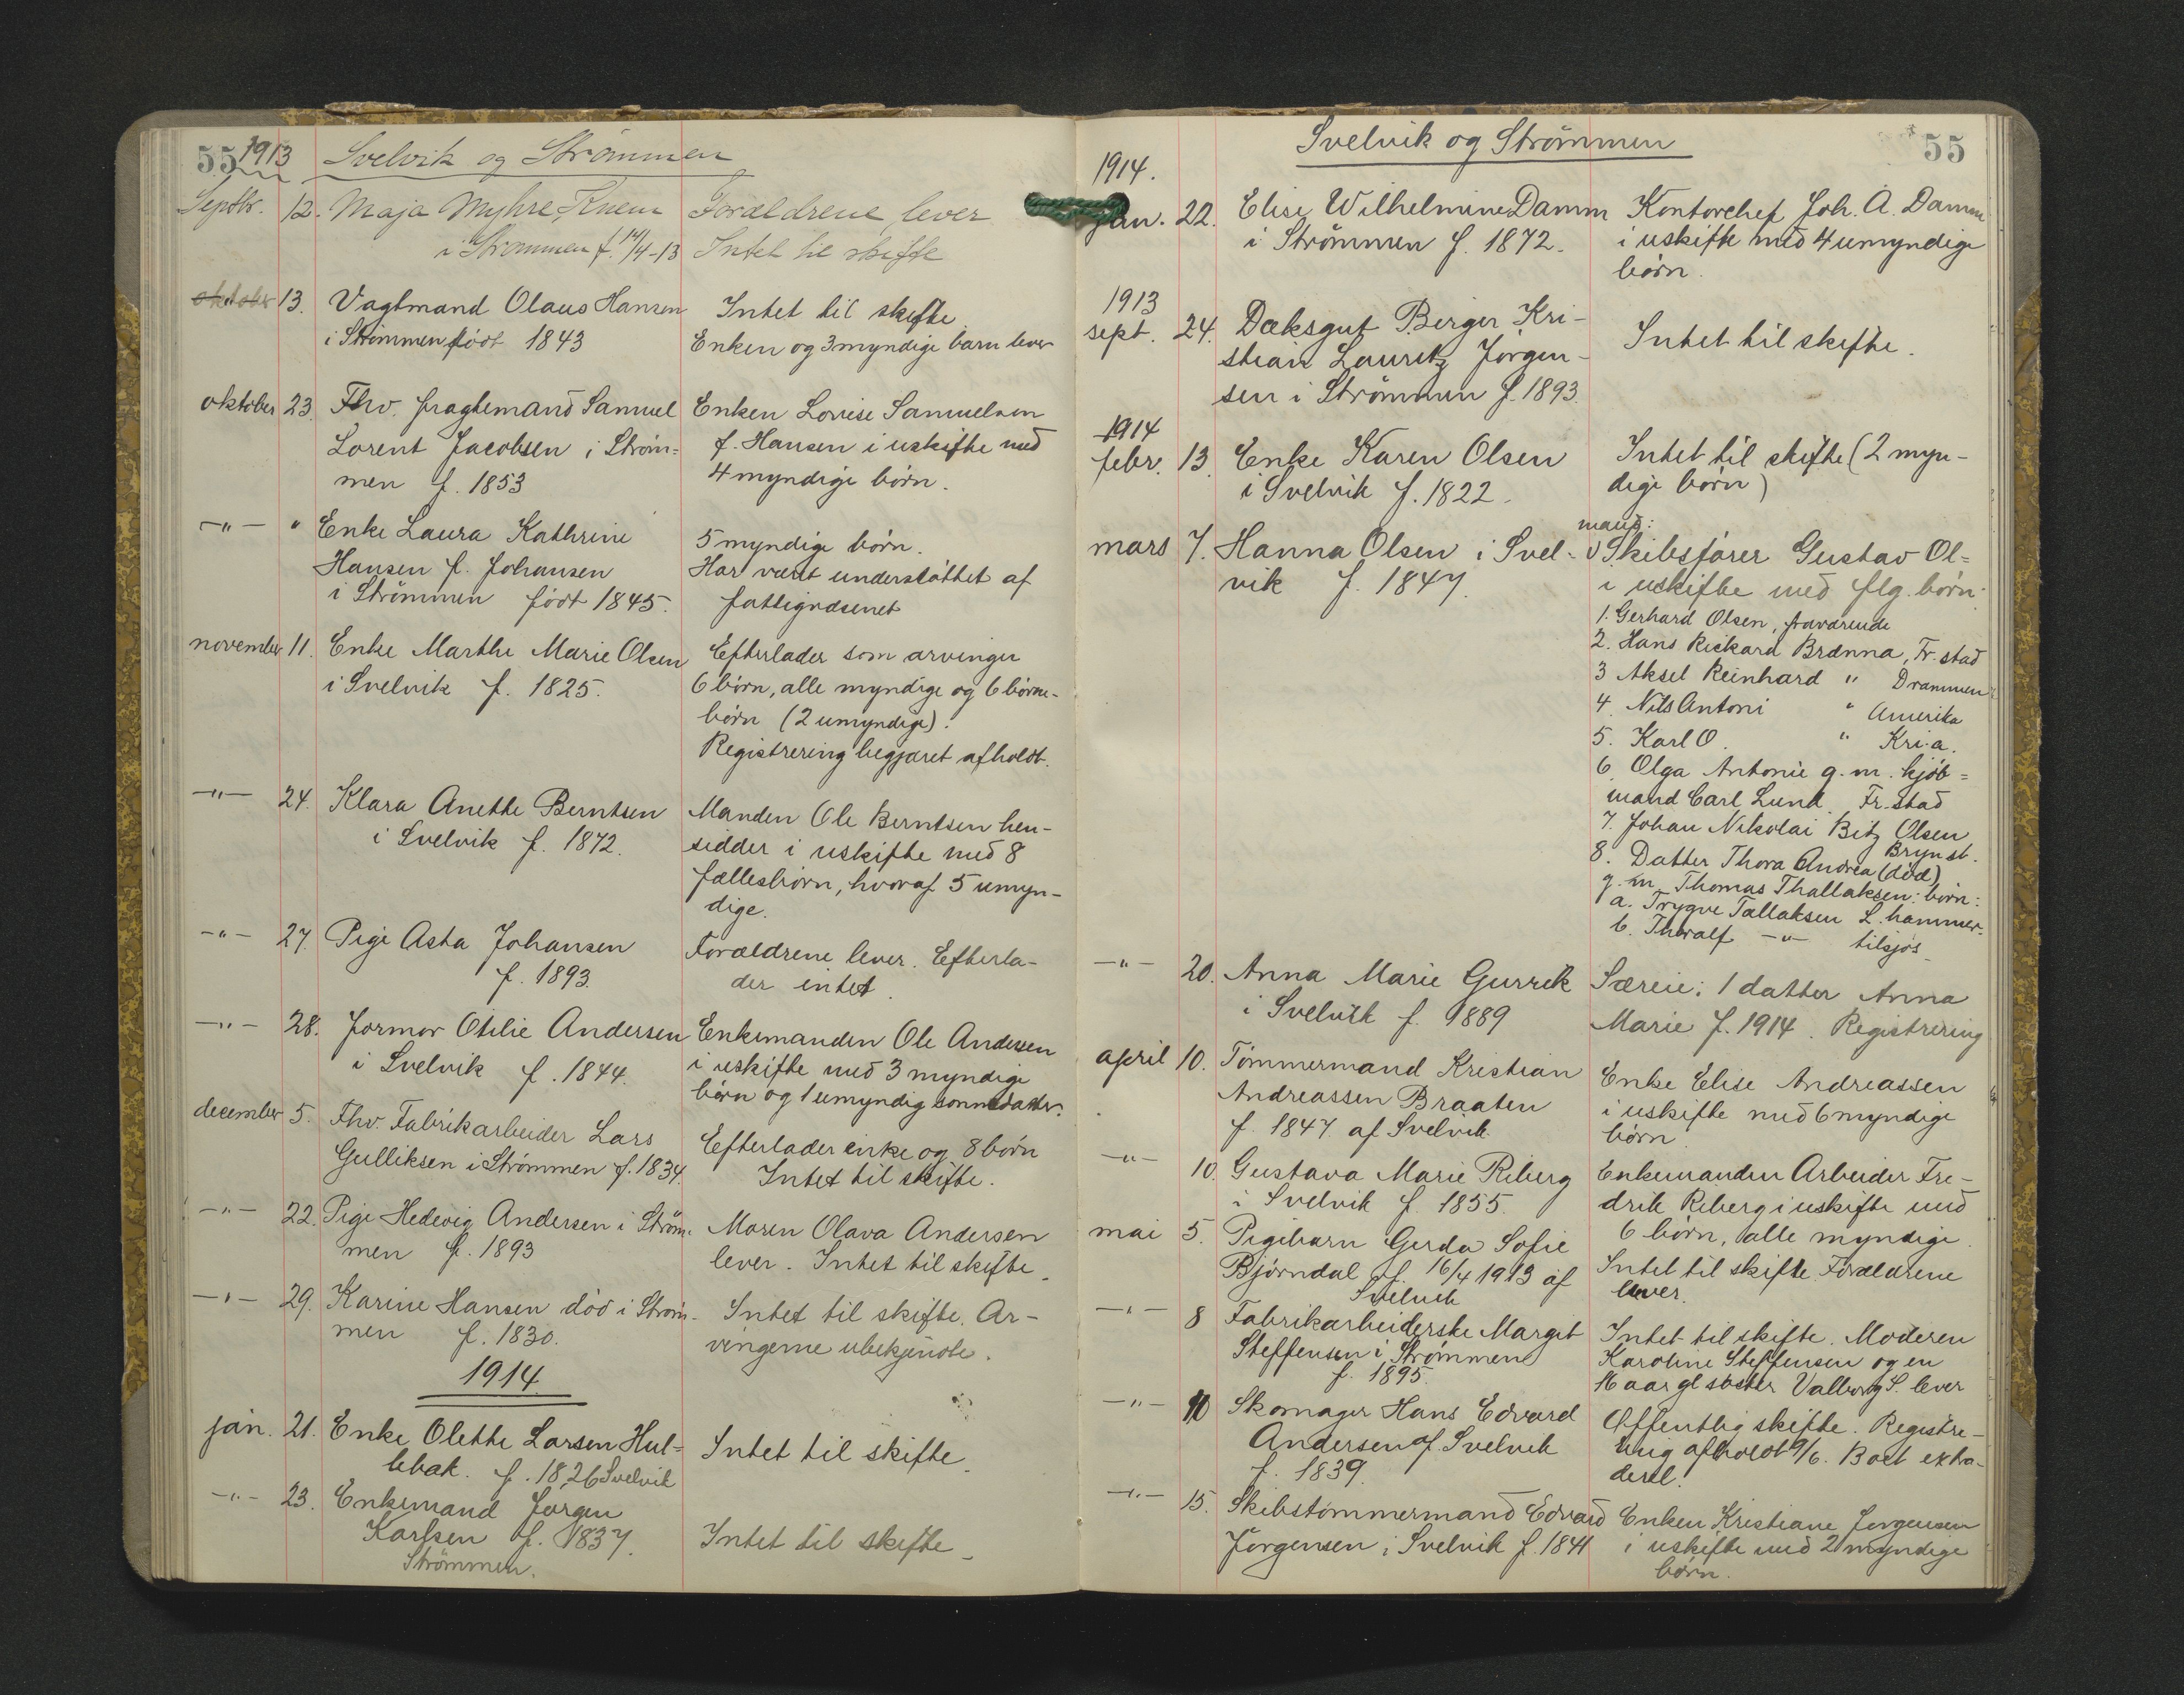 55 1913 Svelvik og Strömmen
Septbr. 12. Maja Myhre Knem
i Strømmen f. 14/4-13
Forældrene lever
Intet til skifte
oktober 13. Vagtmand Olaus Hansen
i Strömmen födt 1843
Intet til skifte
Enken og 3 myndige barn lever
oktober 23. Fhv. fragtemand Samuel
Lorent Jacobsen i Ström=
men f. 1853
Enken Lovise Samuelsen
f. Hansen i uskifte med
4 myndige börn.
-"- " Enke Laura Kathrine
Hansen f. Johansen
i Strömmen födt 1845.
5 myndige börn.
Har vært understöttet af
fattigvæsenet
november 11. Enke Marthe Marie Olsen
i Svelvik f. 1825.
Efterlader som arvinger
6 börn, alle myndige og 6 börne-
börn (2 umyndige).
Registrering begjæret afholdt.
-"- 24. Klara Anette Berntsen
i Svelvik f. 1872.
Manden Ole Berntsen hen-
sidder i uskifte med 8
fællesbörn, hvoraf 5 umyn-
dige.
-"- 27. Pige Asta Johansen
f. 1893.
Forældrene lever. Efterla-
der intet.
-"- 28. Jormor Otilie Andersen
i Svelvik f. 1844.
Enkemanden Ole Andersen
i uskifte med 3 myndige
börn og 1 umyndig sönnedatter.
december 5. Fhv. Fabrikarbeider Lars
Gulliksen i Strömmen f. 1834
Efterlader enke og 8 börn
Intet til skifte.
-"- 22. Pige Hedevig Andersen i Ström-
men f. 1893
Moren Olava Andersen
lever. Intet til skifte.
-"- 29. Karine Hansen död i Ström-
men f. 1830.
Intet til skifte. Ar-
vingerne ubekjendte.
1914
jan. 21. Enke Olette Larsen Hul=
bak. f. 1826 Svelvik
Intet til skifte.
-"- 23. Enkemand Jørgen
Karlsen f. 1837.
Strömmen.
Intet til skifte
Svelvik og Strömmen 55
1914.
jan. 22. Elise Wilhelmine Damm
i Strömmen f. 1872.
Kontorchef Joh. A. Damm
i uskifte med 4 umyndige
börn.
1913
sept. 24. Dæksgut Berger Kri-
stian Lauritz Jörgen-
sen i Strömmen f. 1893.
Intet til skifte.
1914
febr. 13. Enke Karen Olsen
i Svelvik f. 1822.
Intet til skifte (2 myn-
dige börn)
mars 7. Hanna Olsen i Svel-
vik f. 1847.
mand:
Skibsförer Gustav Ol=
i uskifte med flg. börn:
1. Gerhard Olsen, fraværende
2. Hans Rickard Brænna, Fr.stad
3 Aksel Reinhard " Drammen
4. Nils Antoni " Amerika
5. Karl O. " Kri.a.
6. Olga Antonie g. m. kjöb=
mand Carl Lund Fr.stad
7. Johan Nikolai Bitz Olsen
Bryn st.
8. Datter Thora Andrea (död)
g. m. Thomas Thallaksen: börn:
a. Trygve Tallaksen L. hammer.
b. Thoralf -"- tilsjös
-"- 20. Anna Marie Gurrik
i Svelvik f. 1889
Særeie: 1 datter Anna
Marie f. 1914. Registrering
april 10. Tömmermand Kristian
Andreassen Braaten
f. 1847. af Svelvik
Enke Elise Andreassen
i uskifte med 6 myndige
börn
-"- 10. Gustava Marie Riberg
i Svelvik f. 1855.
Enkemanden Arbeider Fre-
drik Riberg i uskifte med
6 börn, alle myndige.
mai 5. Pigebarn Gerda Sofie
Björndal f. 16/4 1913 af
Svelvik
Intet til skifte Forældrene
lever.
-"- 8 Fabrikarbeiderske Margit
Steffensen i Strömmen
f. 1895.
Intet til skifte. Moderen
Karoline Steffensen og en
16 aar gl söster Valborg S. lever
-"- 10 Skomager Hans Edvard
Andersen af Svelvik
f. 1839.
Offentlig skifte. Registre-
ring afholdt 9/6. Boet extra-
derel.
-"- 15. Skibstömmermand Edvard
Jörgensen i Svelvik f. 1841
Enken Kristiane Jorgensen
i uskifte med 2 myndige
börn.